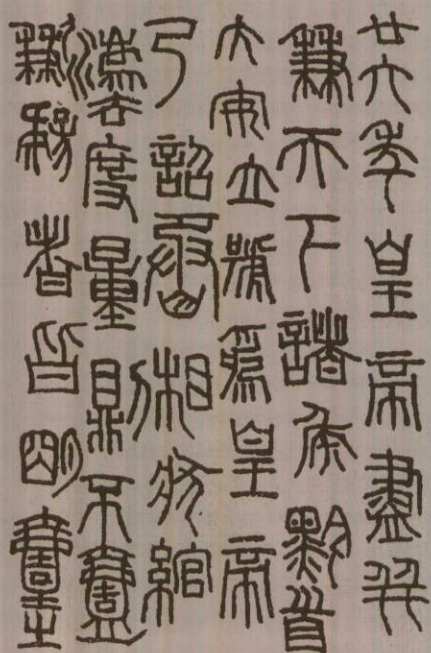 廿六年皇帝盡并
兼天下諸侯黔首
大安立號爲皇帝
乃詔丞相狀綰
灋度量則不壹
歉疑者皆明壹